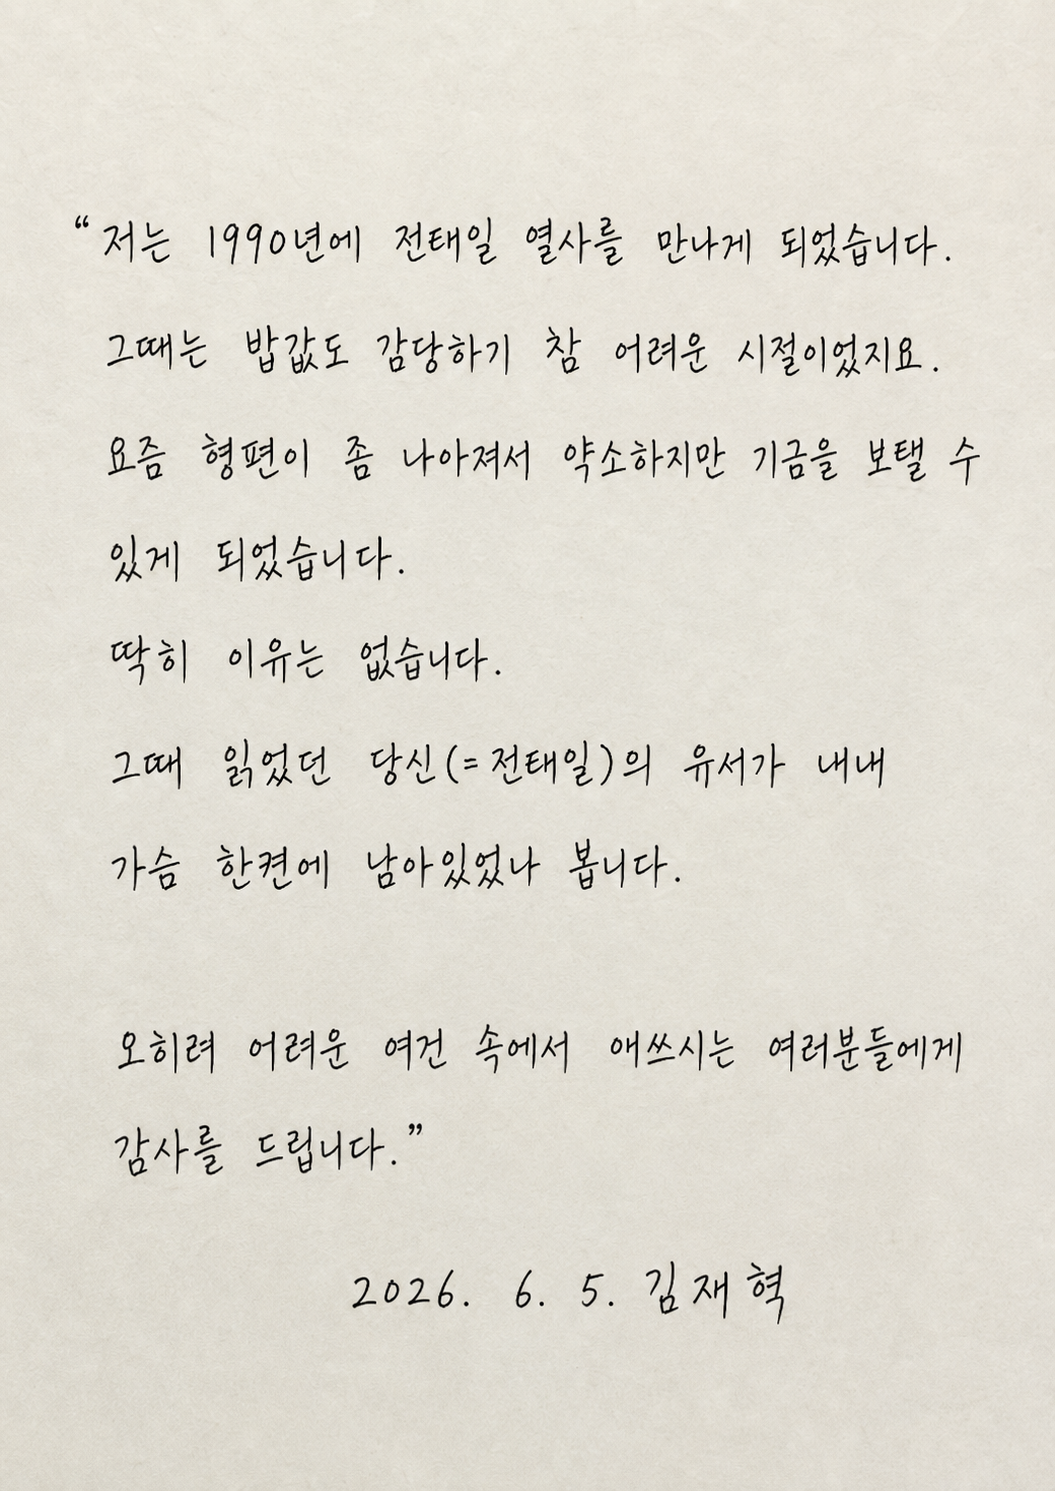 “저는 1990년에 전태일 열사를 만나게 되었습니다.
그때는 밥값도 감당하기 참 어려운 시절이었지요.
요즘 형편이 좀 나아져서 약소하지만 기금을 보탤 수
있게 되었습니다.
딱히 이유는 없습니다.
그때 읽었던 당신(=전태일)의 유서가 내내
가슴 한켠에 남아있었나 봅니다.
오히려 어려운 여건 속에서 애쓰시는 여러분들에게
감사를 드립니다.”
2026. 6. 5. 김재혁